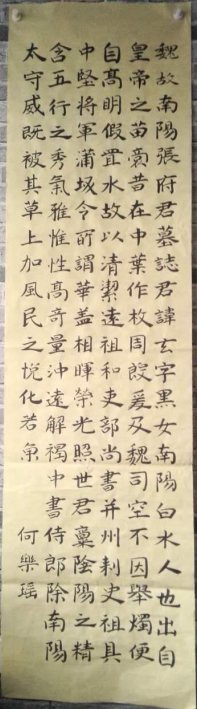 魏故南陽張府君墓誌君諱玄字黑女南陽白水人也出自
皇帝之苗裔昔在中葉作牧周殷爰及魏司空不因舉燭便
自高明假置水故以清潔遠祖和吏部尚書并州刺史祖具
中堅將軍蒲坂令所謂華蓋相暉榮光照世君稟陰陽之精
含五行之秀氣雅惟性高奇量沖遠解褐中書侍郎除南陽
太守威既被其草上加風民之悅化若魚 何樂瑤